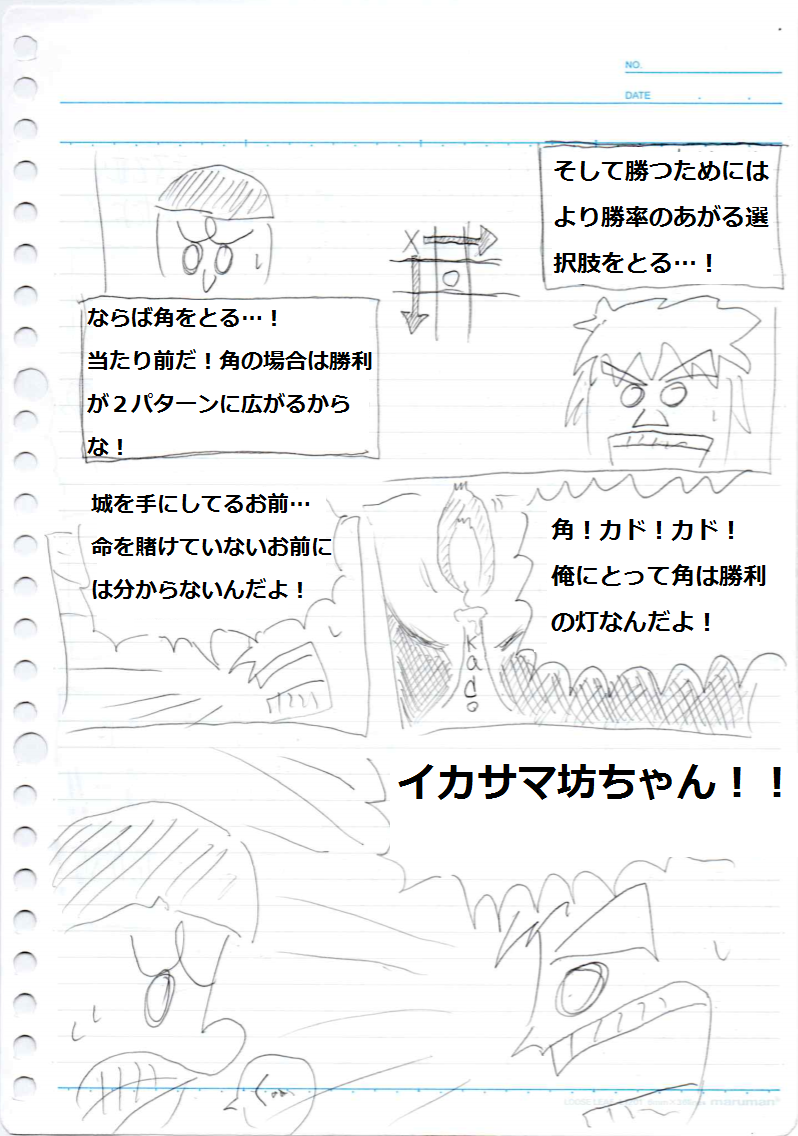 NO.
DATE
そして勝つためには
より勝率のあがる選
択肢をとる…！
X
○
ならば角をとる…！
当たり前だ！角の場合は勝利
が２パターンに広がるから
な！
角！カド！カド！
俺にとって角は勝利
の灯なんだよ！
Kado
城を手にしてるお前…
命を賭けていないお前に
は分からないんだよ！
イカサマ坊ちゃん！！
maruman